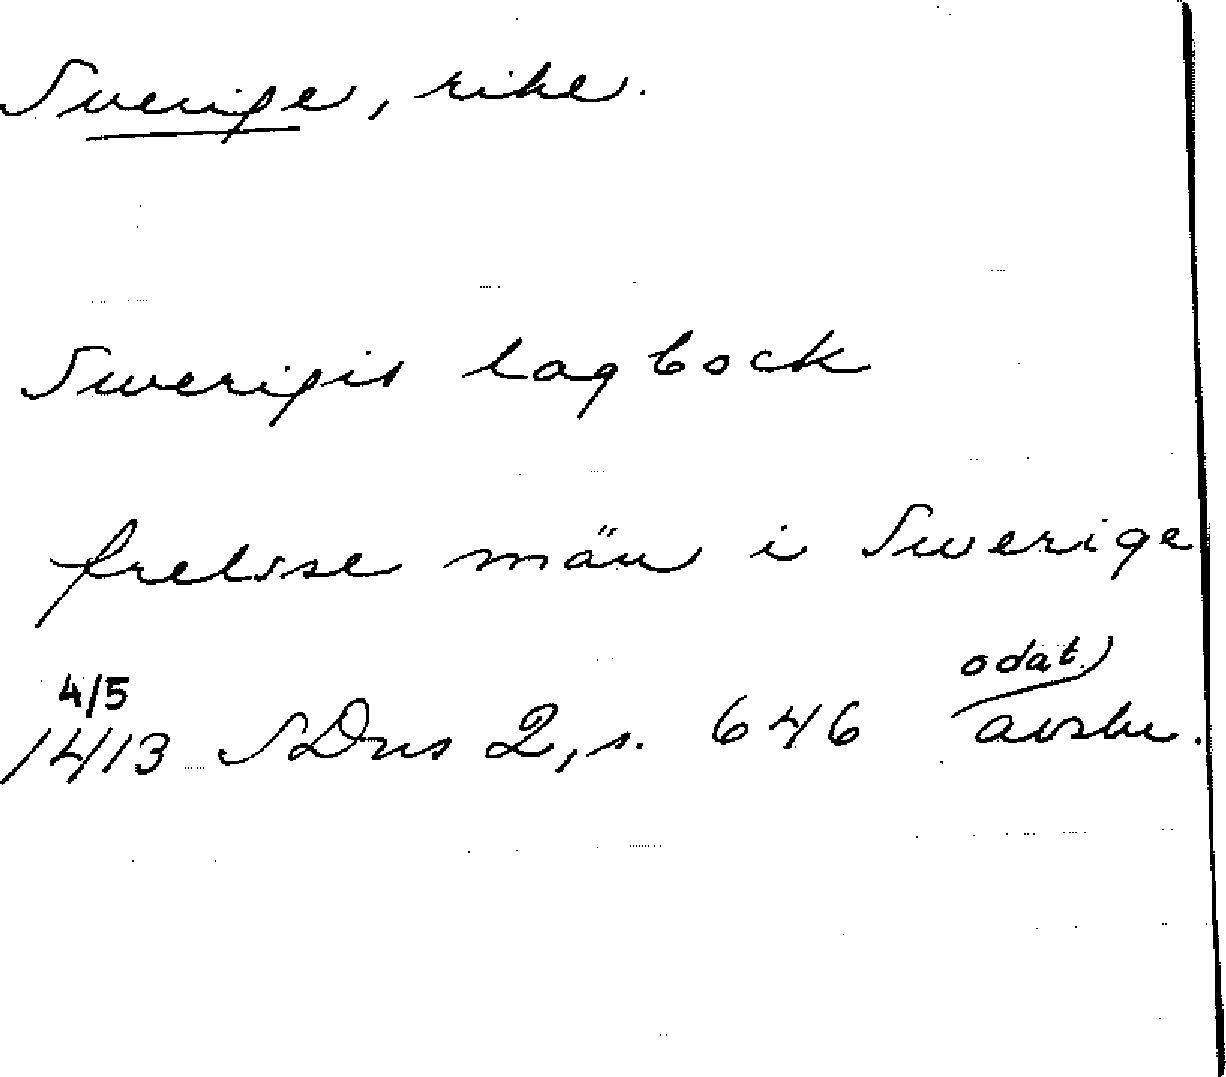 Sverige, rike.
Swerigis lagbock
frelsse män i Swerige
4/5 odat.
1413 SDns 2, s. 646 avskr.